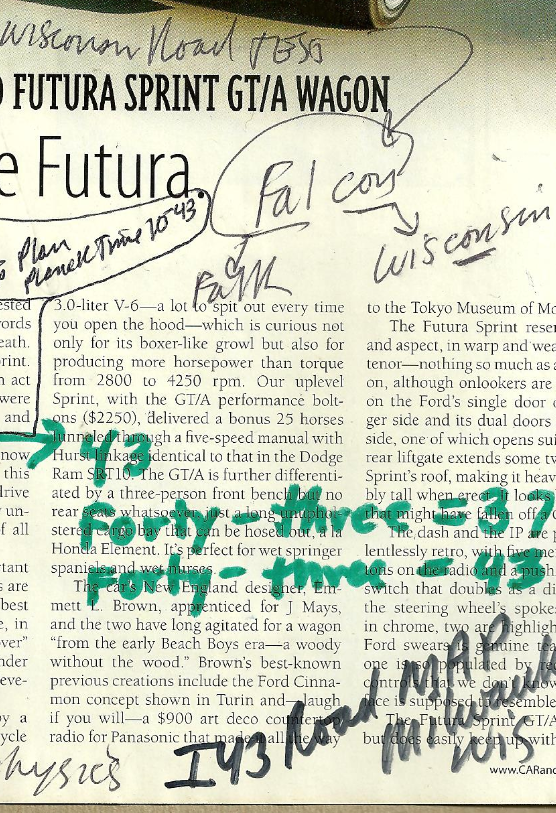 Wisconsin Road TEST
FUTURA SPRINT GT/A WAGON
e Futura
Falcon
Plan
Planek Time 10-43
Wisconsin
3.0-liter V-6—a lot to spit out every time
you open the hood—which is curious not
only for its boxer-like growl but also for
producing more horsepower than torque
from 2800 to 4250 rpm. Our uplevel
Sprint, with the GT/A performance bolt-
ons ($2250), delivered a bonus 25 horses
tunneled through a five-speed manual with
Hurst linkage identical to that in the Dodge
Ram SRT10. The GT/A is further differenti-
ated by a three-person front bench but no
rear seats whatsoever, just a long unuphol-
stered cargo bay that can be hosed out, à la
Honda Element. It's perfect for wet springer
spaniels and wet nurses.
The car's New England designer, Em-
mett L. Brown, apprenticed for J Mays,
and the two have long agitated for a wagon
"from the early Beach Boys era—a woody
without the wood." Brown's best-known
previous creations include the Ford Cinna-
mon concept shown in Turin and—laugh
if you will—a $900 art deco countertop
radio for Panasonic that made all the way
to the Tokyo Museum of Mo
The Futura Sprint rese
and aspect, in warp and wea
tenor—nothing so much as a
on, although onlookers are
on the Ford's single door o
ger side and its dual doors
side, one of which opens sui
rear liftgate extends some tw
Sprint's roof, making it heav
bly tall when erect. It looks
that might have fallen off a C
The dash and the IP are p
lentlessly retro, with five me
tons on the radio and a push
switch that doubles as a di
the steering wheel's spoke
in chrome, two are highligh
Ford swears is genuine tea
one is populated by re
controls that we don't know
ace is supposed to resemble
The Futura Sprint GT/A
but does easily keep up with
ested
ords
eath.
rint.
n act
were
and
now
this
drive
un-
f all
rtant
s are
best
e, in
over"
nder
eve-
by a
ycle
43
Forty-three = 37
Forty-three = 43
I43 Road MAP
Milwaukee
WIS
Physics
www.CARand